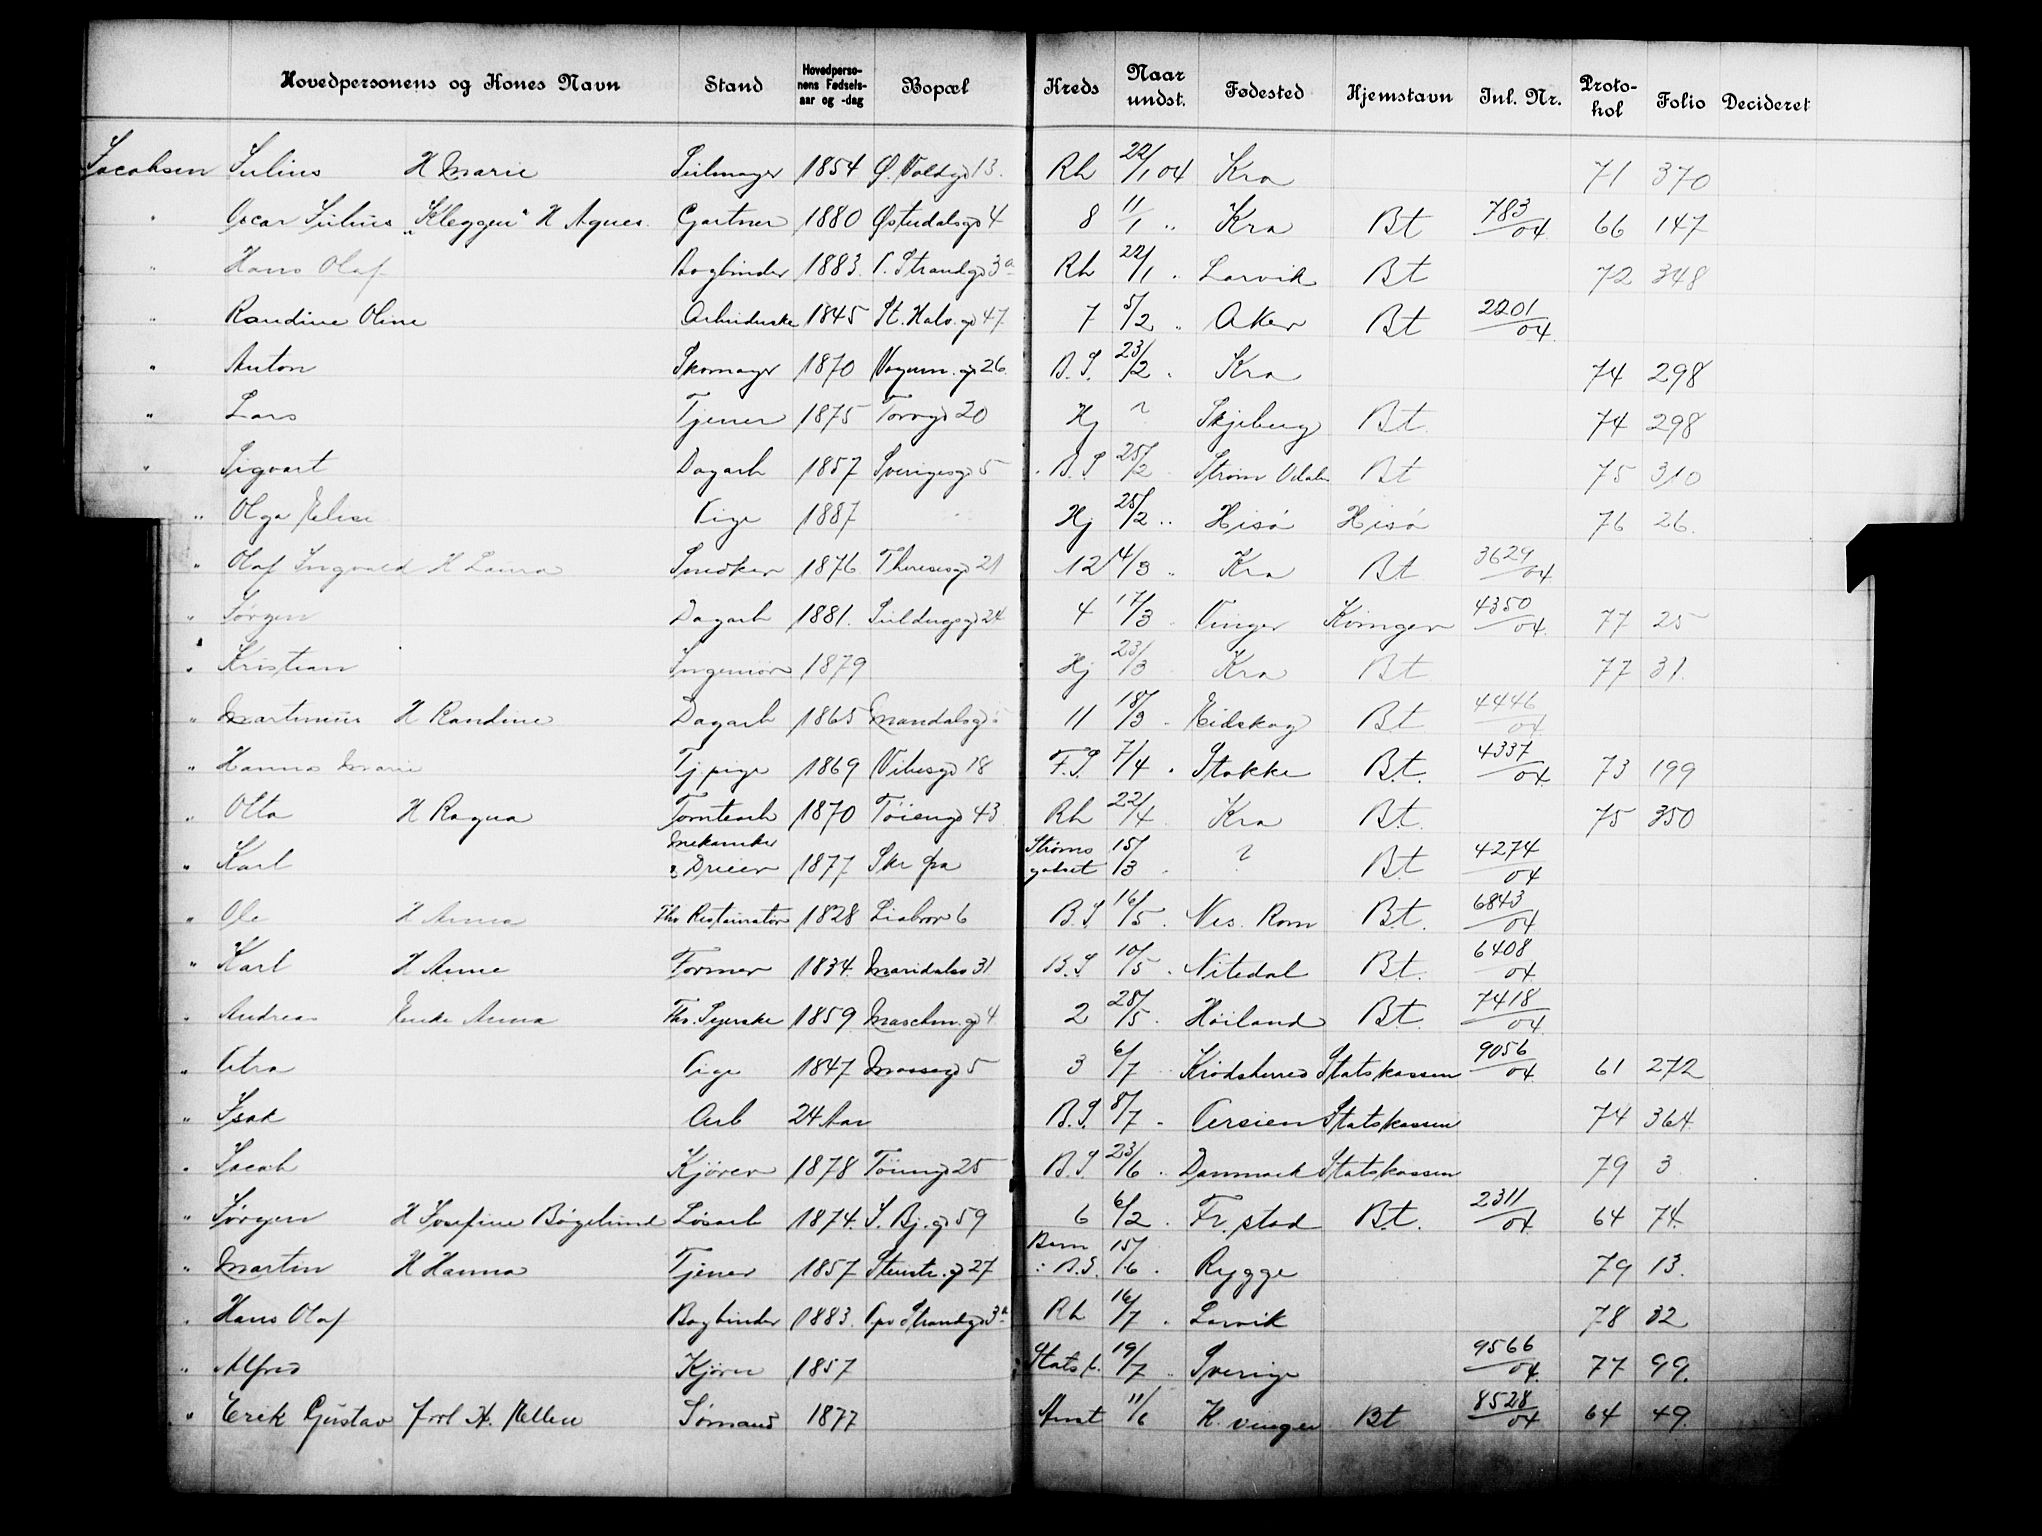 Hovedpersonens og Kones Navn Stand Hovedperso-nens Fødsels-aar og -dag Bopæl Kreds Naar undst. Fødested Hjemstavn Jnl. Nr. Proto-kol Folio Decideret
Jacobsen Julius H Marie Seilmager 1854 Ø. Voldgd 13. Rh 22/1 04 Kra 71 370
" Oscar Julius „Kleggen" H Agnes. Gartner 1880 Østerdalsgd 4 8 11/1 " Kra Bt 783/04 66 147
" Hans Olaf Bogbinder 1883. P. Strandgd 3a Rh 22/1 " Larvik Bt 72 348
" Randine Oline Arbeiderske 1845 St. Halv. gd 47 7 5/2 " Aker Bt 2201/04
" Anton Skomager 1870 Vognm. gd 26. B. S. 23/2 " Kra 74 298
" Lars Tjener 1875 Torvgd 20 Hj " Skjeberg Bt. 74 298
" Sigvart Dagarb 1857 Sverigesgd 5 B. S. 25/2 Strøm Odalen Bt 75 310
" Olga Elise Pige 1887 Hj 25/2 " Hisø Hisø 76 26.
" Olaf Ingvald H Laura Snedker 1876 Theresesgd 21 12 14/3 " Kra Bt 3629/04
" Jørgen Dagarb 1881. 4 17/3 " Vinger Kvinger 4350/04 77 25
" Kristian Ingeniør 1879 Hj 23/3 Kra Bt 77 31.
" Martinius H Randine Dagarb 1865 Mandalsgd 11 18/3 " Eidskog Bt 4446/04
" Hanna Marie Tj. pige 1869 Vibesgd 18 F. S. 7/4 " Stokke Bt. 4337/04 73 199
" Otto H Ragna Tomtearb 1870 Tøiengd 43 Rh 22/4 Kra Bt. 75 350
" Karl Mekaniker & Dreier 1877 Skr fra Strømsgodset 15/3 " ? Bt 4274/04
" Ole H Anna Fhv Restauratør 1828 Liabror 6 B. S 16/5 " Nes. Rom Bt. 6843/04
" Karl H Anne Former 1834. Maridalsv 31 B. S 10/5 " Nitedal Bt. 6408/04
" Andreas Enke Anna Fhv. Syerske 1859 Maschm. gd 4 2 25/5 " Høiland Bt. 7418/04
" Petra Pige 1847 Mossegd 5 3 6/7 " Krødsherred Statskassen 9056/04 61 272
" Isak Arb 24 Aar B. S. 8/7 " Persien Statskassen 74 364
" Jacob Kjører 1878 Tøiengd 25 B. S 23/6 " Danmark Statskassen 79 3
" Jørgen H Josefine Bøgelund Løsarb 1874. S. Bj. gd 59 6 6/2 " Fr. stad Bt. 2311/04 64 74.
" Martin H Hanna Tjener 1857 Stenstr. gd 27 Barn i B. S. 15/6 " Rygge 79 13.
" Hans Olaf Bogbinder 1883. P. Strandgd 3a Rh 16/7 " Larvik 78 32
" Alfred Kjører 1857 Stats k. 19/7 " Sverige 9566/04 77 99.
" Erik Gustav forl H. Ellen Sømand 1877 Amt 11/6 K. vinger Bt 8528/04 64 49.